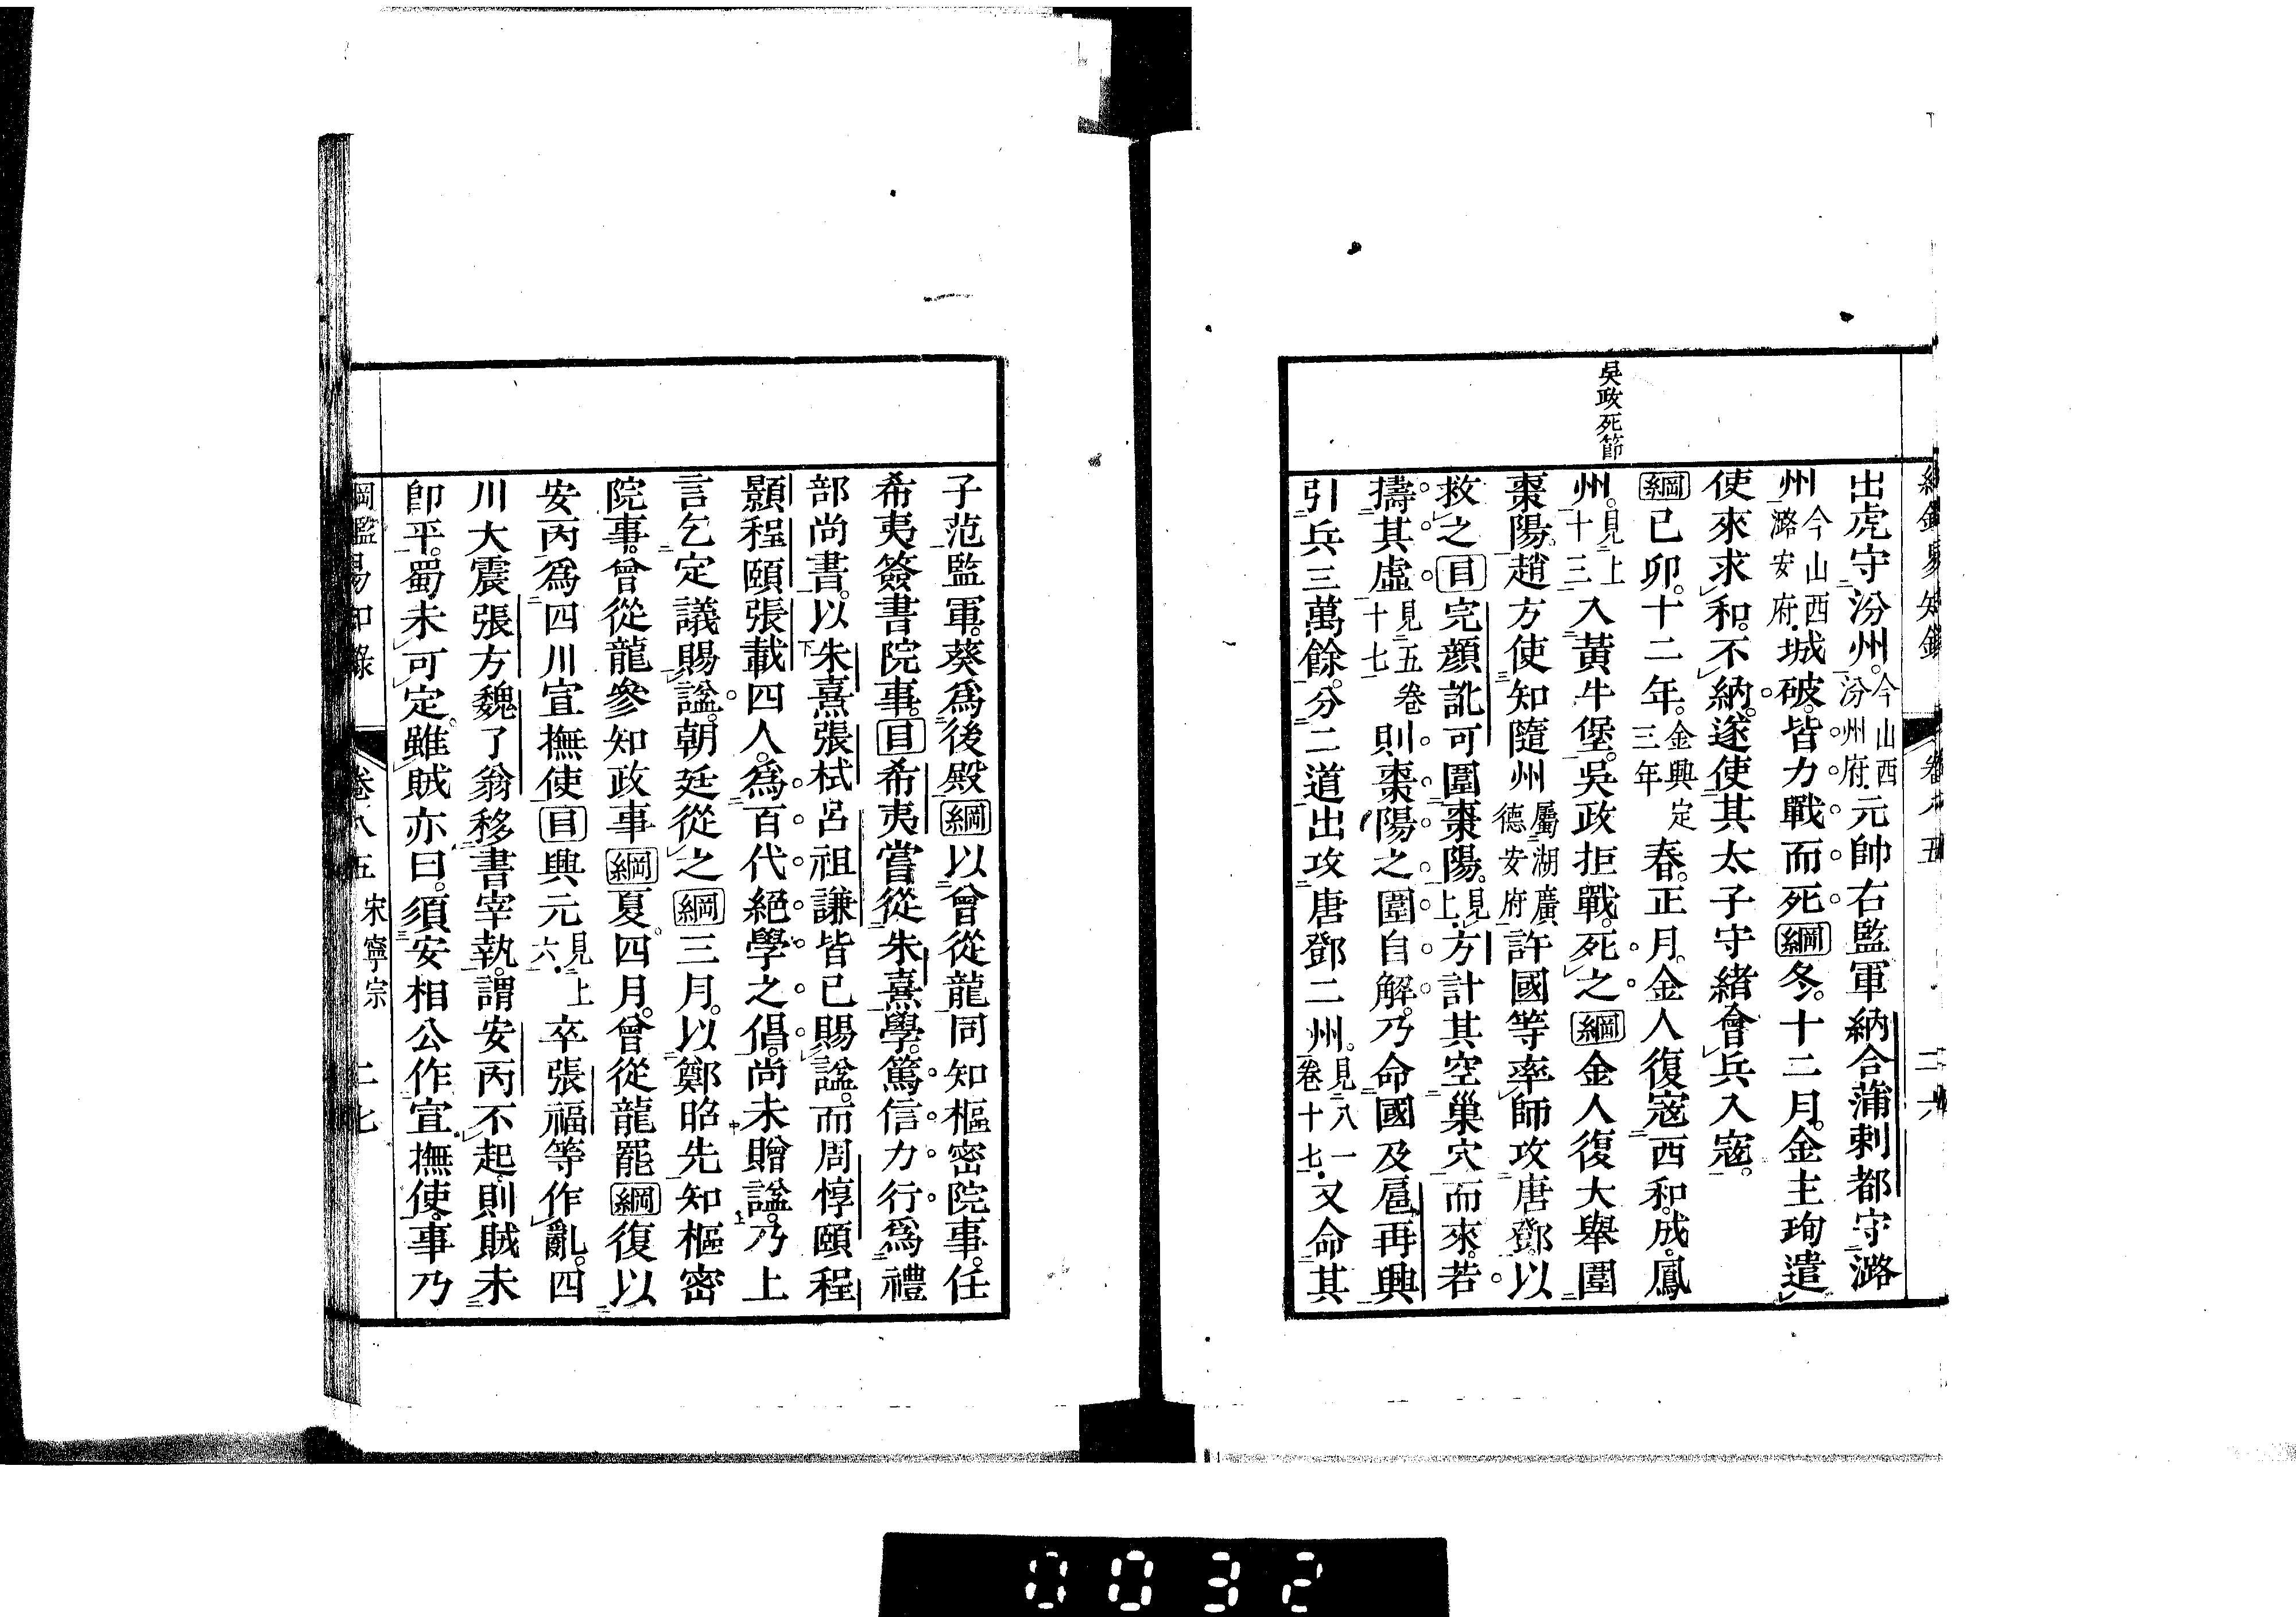 綱鑑易知錄 卷八五 二六
吳政死節
出虎守汾州。今山西汾州府。元帥右監軍納合蒲剌都守潞
州今山西潞安府。城破。皆力戰而死綱冬。十二月。金主珣遣
使來求和。不納。遂使其太子守緒會兵入寇。
綱己卯。十二年。金興定三年春。正月。金人復寇西和。成。鳳
州。見上十三入黃牛堡。吳政拒戰。死之。綱金人復大舉圍
棗陽。趙方使知隨州屬湖廣德安府許國等率師攻唐鄧。以
救之目完顏訛可圍棗陽。見上。方計其空巢穴而來。若
擣其虛見五卷十七則棗陽之圍自解。乃命國及扈再興
引兵三萬餘。分二道出攻唐鄧二州。見八一卷十七。又命其
子范監軍。葵爲後殿綱以曾從龍同知樞密院事。任
希夷簽書院事。目希夷嘗從朱熹學。篤信力行。爲禮
部尚書。以朱熹張栻呂祖謙皆已賜諡。而周惇頤程
顥程頤張載四人。爲百代絕學之倡。尚未贈諡。乃上
言乞定議賜諡。朝廷從之綱三月。以鄭昭先知樞密
院事。曾從龍參知政事綱夏。四月。曾從龍罷綱復以
安丙爲四川宣撫使目興元見上六。卒張福等作亂。四
川大震張方魏了翁移書宰執。謂安丙不起。則賊未
卽平。蜀未可定。雖賊亦曰。須安相公作宣撫使。事乃
綱鑑易知錄 卷八五 宋寧宗 二七
0032